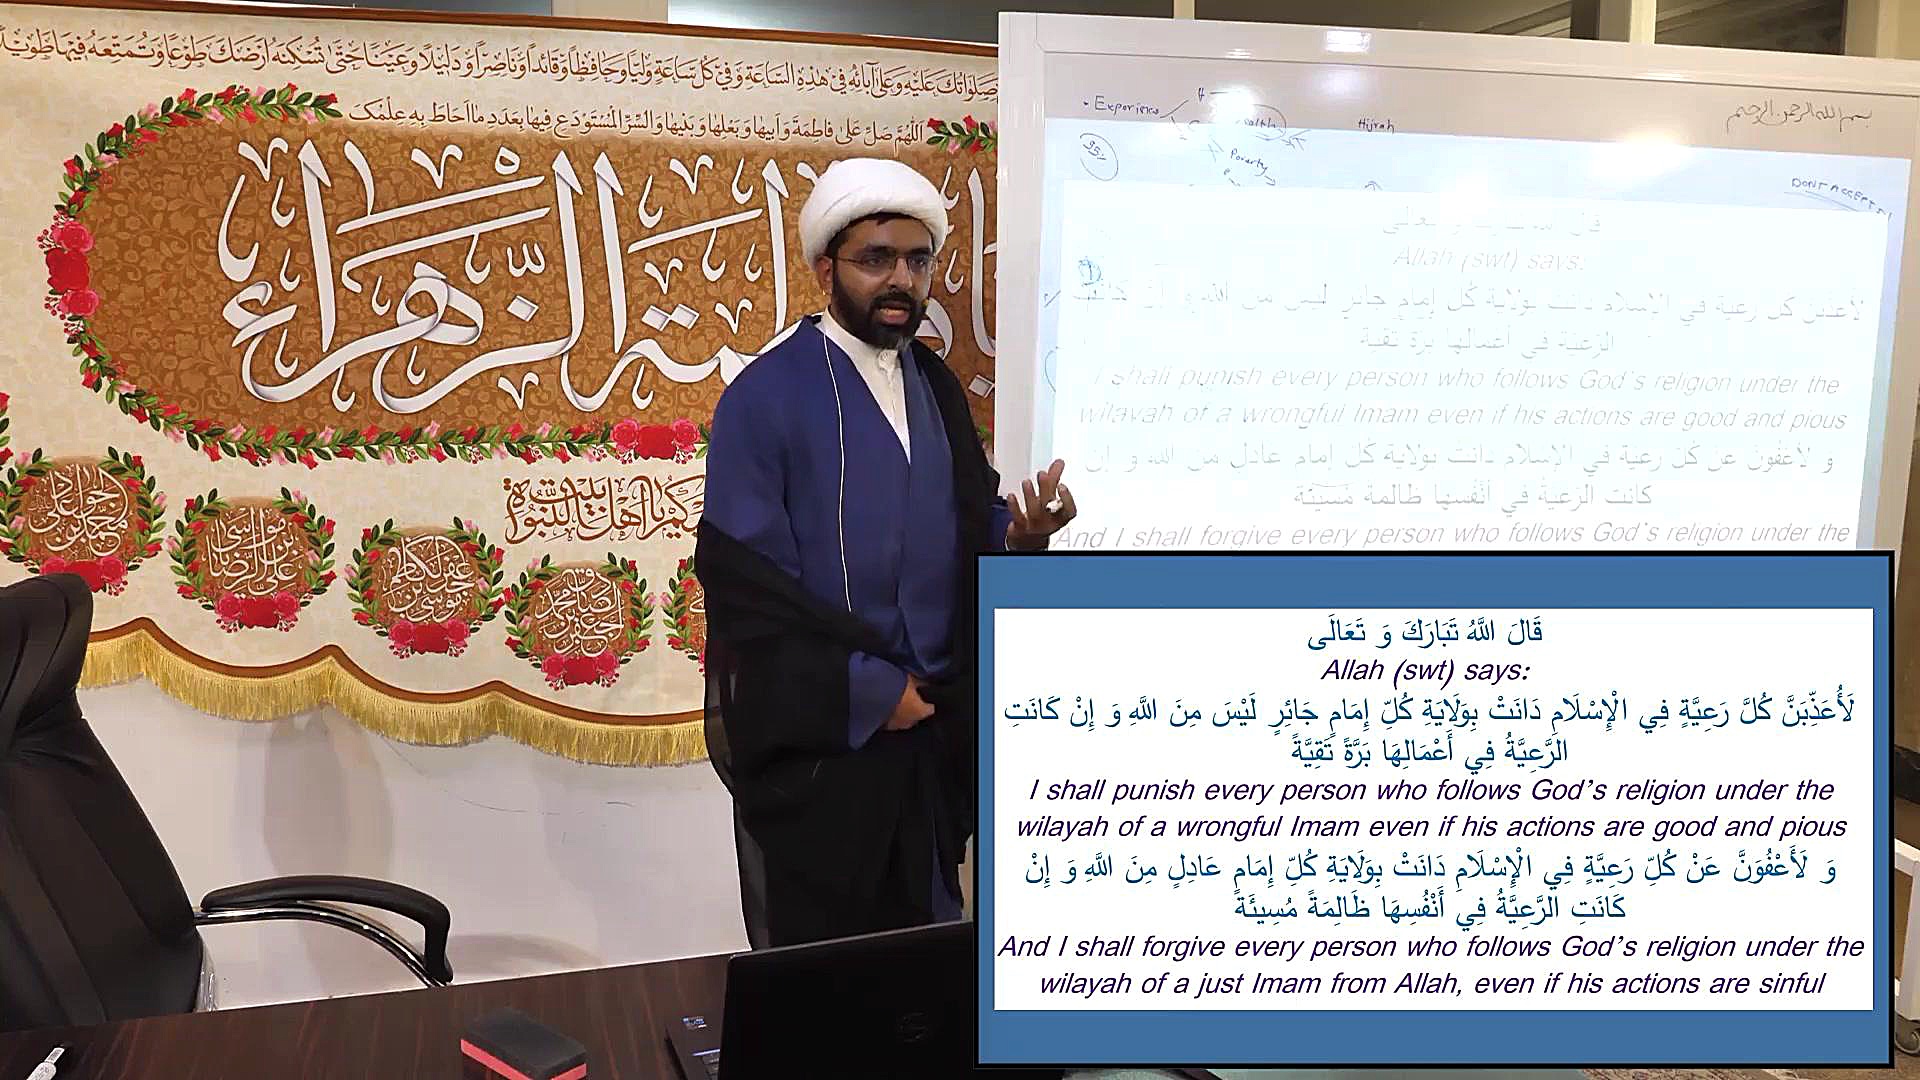 صَلَوَاتُكَ عَلَيْهِ وَعَلَىٰ آبَائِهِ فِي هَٰذِهِ السَّاعَةِ وَفِي كُلِّ سَاعَةٍ وَلِيًّا وَحَافِظًا وَقَائِدًا وَنَاصِرًا وَدَلِيلًا وَعَيْنًا حَتَّىٰ تُسْكِنَهُ أَرْضَكَ طَوْعًا وَتُمَتِّعَهُ فِيهَا طَوِيلًا
اَللّٰهُمَّ صَلِّ عَلىٰ فاطِمَةَ وَاَبيها وَبَعْلِها وَبَنيها وَالسِّرِّ الْمُسْتَوْدَعِ فيها بِعَدَدِ ما اَحاطَ بِهِ عِلْمُكَ
الزهراء
يا اهل بيت النبوة
محمد بن علي الجواد
علي بن موسى الرضا
موسى بن جعفر الكاظم
جعفر بن محمد الصادق
بسم الله الرحمن الرحيم
• Experience
Hijrah
Poverty
DON'T ACCEPT
قال الله تبارك و تعالى
Allah (swt) says:
لأعذبن كل رعية في الإسلام دانت بولاية كل إمام جائر ليس من الله و إن كانت
الرعية في أعمالها برة تقية
I shall punish every person who follows God's religion under the
wilayah of a wrongful Imam even if his actions are good and pious
و لأعفون عن كل رعية في الإسلام دانت بولاية كل إمام عادل من الله و إن
كانت الرعية في أنفسها ظالمة مسيئة
And I shall forgive every person who follows God's religion under the
قَالَ اللَّهُ تَبَارَكَ وَ تَعَالَى
Allah (swt) says:
لَأُعَذِّبَنَّ كُلَّ رَعِيَّةٍ فِي الْإِسْلَامِ دَانَتْ بِوَلَايَةِ كُلِّ إِمَامٍ جَائِرٍ لَيْسَ مِنَ اللَّهِ وَ إِنْ كَانَتِ
الرَّعِيَّةُ فِي أَعْمَالِهَا بَرَّةً تَقِيَّةً
I shall punish every person who follows God's religion under the
wilayah of a wrongful Imam even if his actions are good and pious
وَ لَأَعْفُوَنَّ عَنْ كُلِّ رَعِيَّةٍ فِي الْإِسْلَامِ دَانَتْ بِوَلَايَةِ كُلِّ إِمَامٍ عَادِلٍ مِنَ اللَّهِ وَ إِنْ
كَانَتِ الرَّعِيَّةُ فِي أَنْفُسِهَا ظَالِمَةً مُسِيئَةً
And I shall forgive every person who follows God's religion under the
wilayah of a just Imam from Allah, even if his actions are sinful